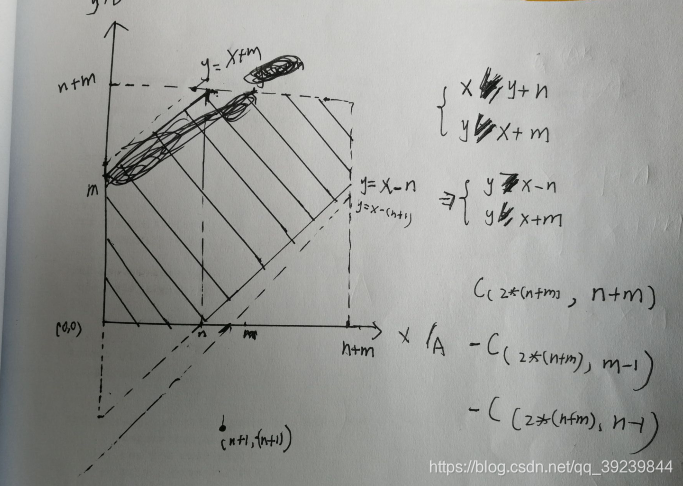 y/
y = x+m
n+m
m
y=x-n
y=x-(n+1)
(0,0)
n
m
n+m
x /A
(n+1,-(n+1))
x y+n
y x+m
⇒ y x-n
y x+m
C(2*(n+m), n+m)
-C(2*(n+m), m-1)
-C(2*(n+m), n-1)
https://blog.csdn.net/qq_39239844